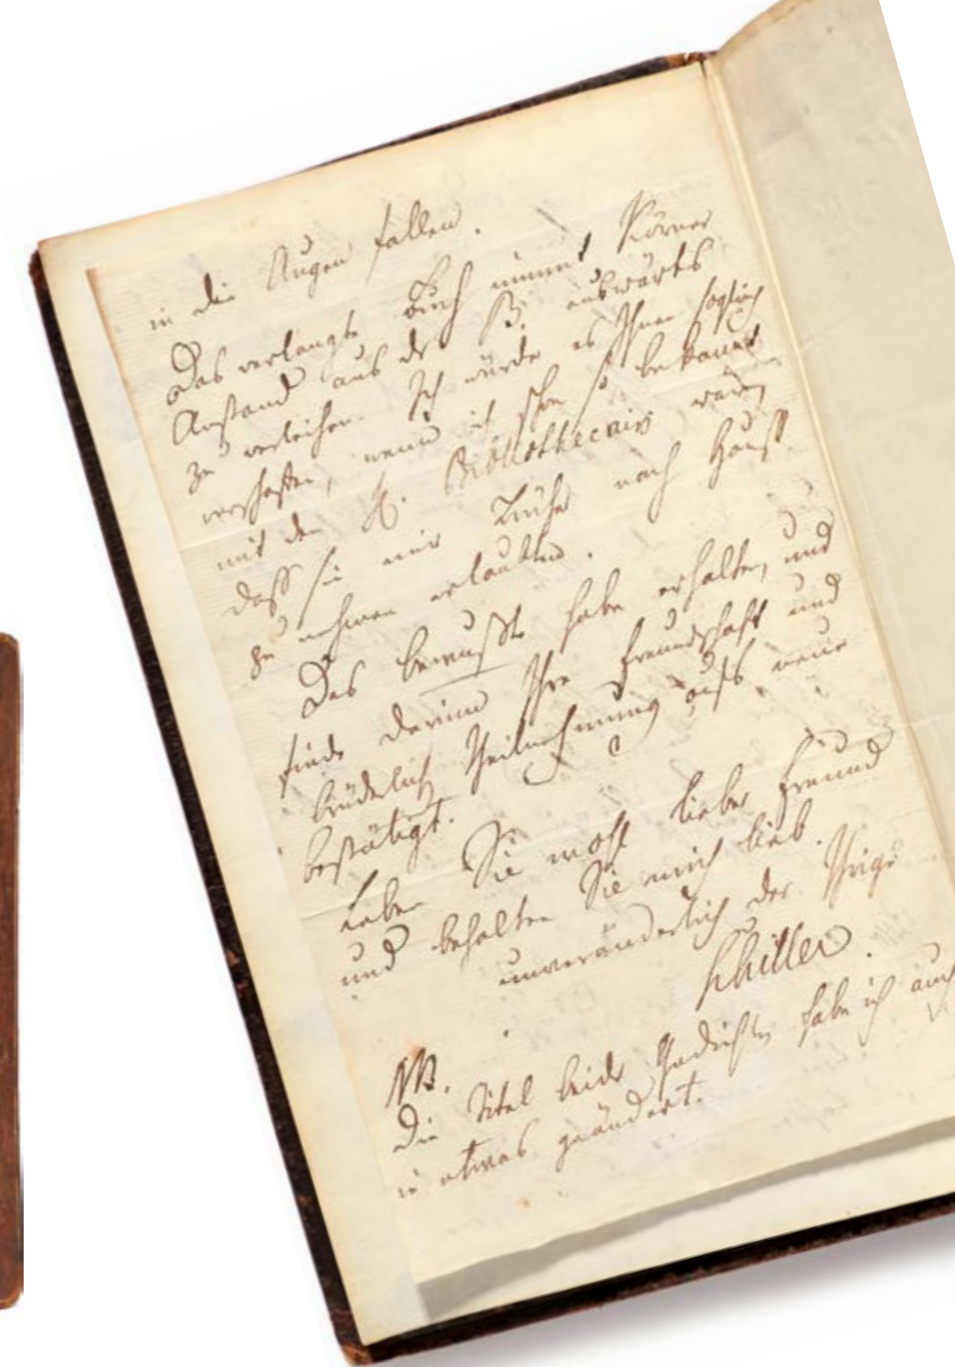 in die Augen fallen.
Das verlangte Buch nimmt Körner
Anstand aus der B. auswärts
zu verleihen. Ich würde es Ihnen sogleich
verschaffen, wenn ich schon so bekannt
mit den H. Bibliothecairs wäre,
daß sie mir Bücher nach Hauß
zu nehmen erlaubten.
Das bewußte habe erhalten, und
finde darinn Ihre Freundschaft und
brüderliche Theilnehmung aufs neue
bestätigt.
Leben Sie wohl lieber Freund
und behalten Sie mich lieb.
unveränderlich der Ihrige
Schiller.
NB.
Die Titel beider Gedichte habe ich auch
in etwas geändert.